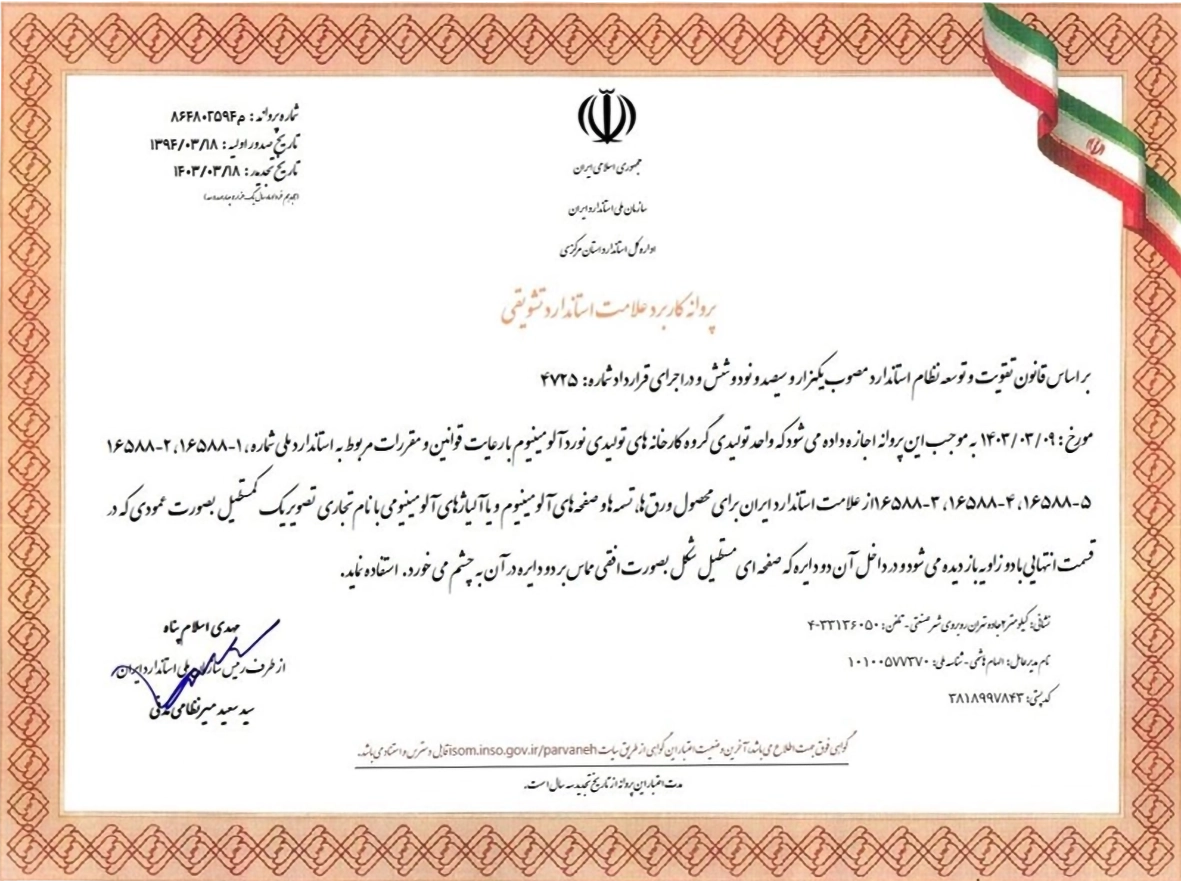 شماره پروانه : م۸۶۴۸۰۲۵۹۴
تاریخ صدور اولیه : ۱۳۹۴/۰۳/۱۸
تاریخ تمدید : ۱۴۰۳/۰۳/۱۸
جمهوری اسلامی ایران
سازمان ملی استاندارد ایران
اداره کل استاندارد استان مرکزی
پروانه کاربرد علامت استاندارد تشویقی
بر اساس قانون تقویت و توسعه نظام استاندارد مصوب یکهزار و سیصد و نود و شش و در اجرای قرارداد شماره: ۴۷۲۵
مورخ : ۱۴۰۳/۰۳/۰۹ به موجب این پروانه اجازه داده می شود که واحد تولیدی گروه کارخانه های تولیدی نورد آلومینیوم با رعایت قوانین و مقررات مربوط به استاندارد ملی شماره ، ۱-۱۶۵۸۸، ۲-۱۶۵۸۸
۵-۱۶۵۸۸، ۴-۱۶۵۸۸، ۳-۱۶۵۸۸از علامت استاندارد ایران برای محصول ورق ها، تسمه ها و صفحه های آلومینیوم و یا آلیاژهای آلومینیومی با نام تجاری تصویر یک مستطیل بصورت عمودی که در
قسمت انتهایی با دو زاویه باز دیده می شود و در داخل آن دو دایره که صفحه ای مستطیل شکل بصورت افقی مماس بر دو دایره در آن به چشم می خورد. استفاده نماید.
نشانی: کیلومتر ۴ جاده تهران روبروی شهر صنعتی - تلفن: ۳۳۱۳۶۰۵۰-۴
نام مدیرعامل: الهام هاشمی - شناسه ملی: ۱۰۱۰۰۵۷۷۳۷۰
کدپستی: ۳۸۱۸۹۹۷۸۴۳
مهدی اسلام پناه
از طرف رئیس سازمان ملی استاندارد ایران
سید سعید میرنظامی
گواهی فوق جهت اطلاع می باشد، آخرین وضعیت اعتبار این گواهی از طریق سایت isom.inso.gov.ir/parvaneh قابل دسترس و استناد می باشد.
مدت اعتبار این پروانه از تاریخ تجدید سه سال است.